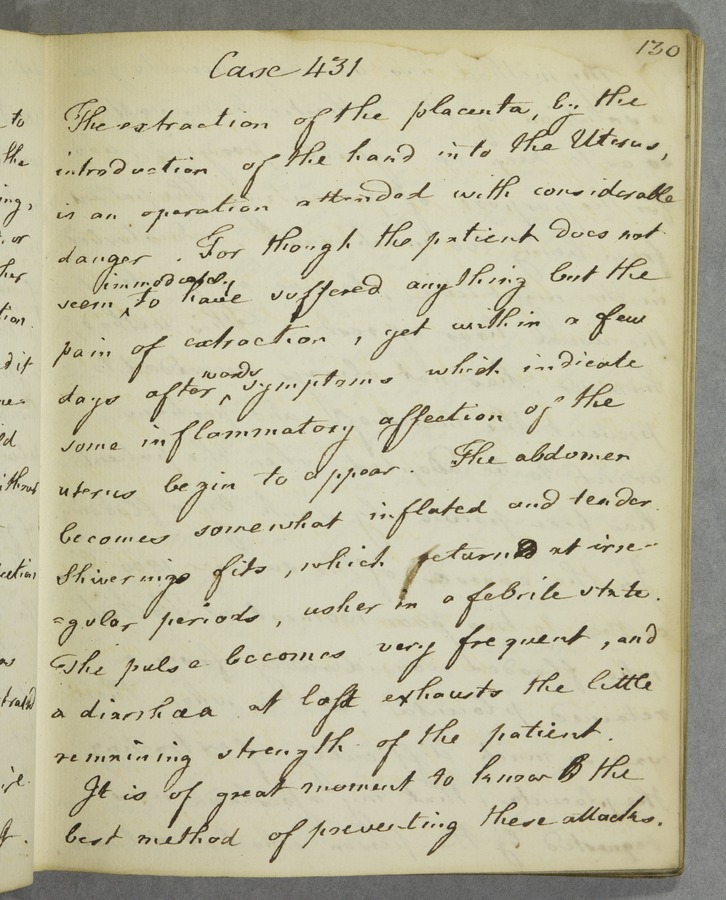 130
Case 431
The extraction of the placenta, by the
introduction of the hand into the Uterus,
is an operation attended with considerable
danger. For though the patient does not
immoderately
seem ‸ to have suffered anything but the
pain of extraction, yet within a few
wards
days after ‸ symptoms which indicate
some inflammatory affection of the
uterus begin to appear. The abdomen
becomes somewhat inflated and tender
Shiverings fits, which returns at irre-
=gular periods, usher in a febrile state.
The pulse becomes very frequent, and
a diarrhœa at last exhausts the little
remaining strength of the patient.
It is of great moment to know the
best method of preventing these attacks.
to
the
ing,
or
her
tion.
d it
ld
ithout